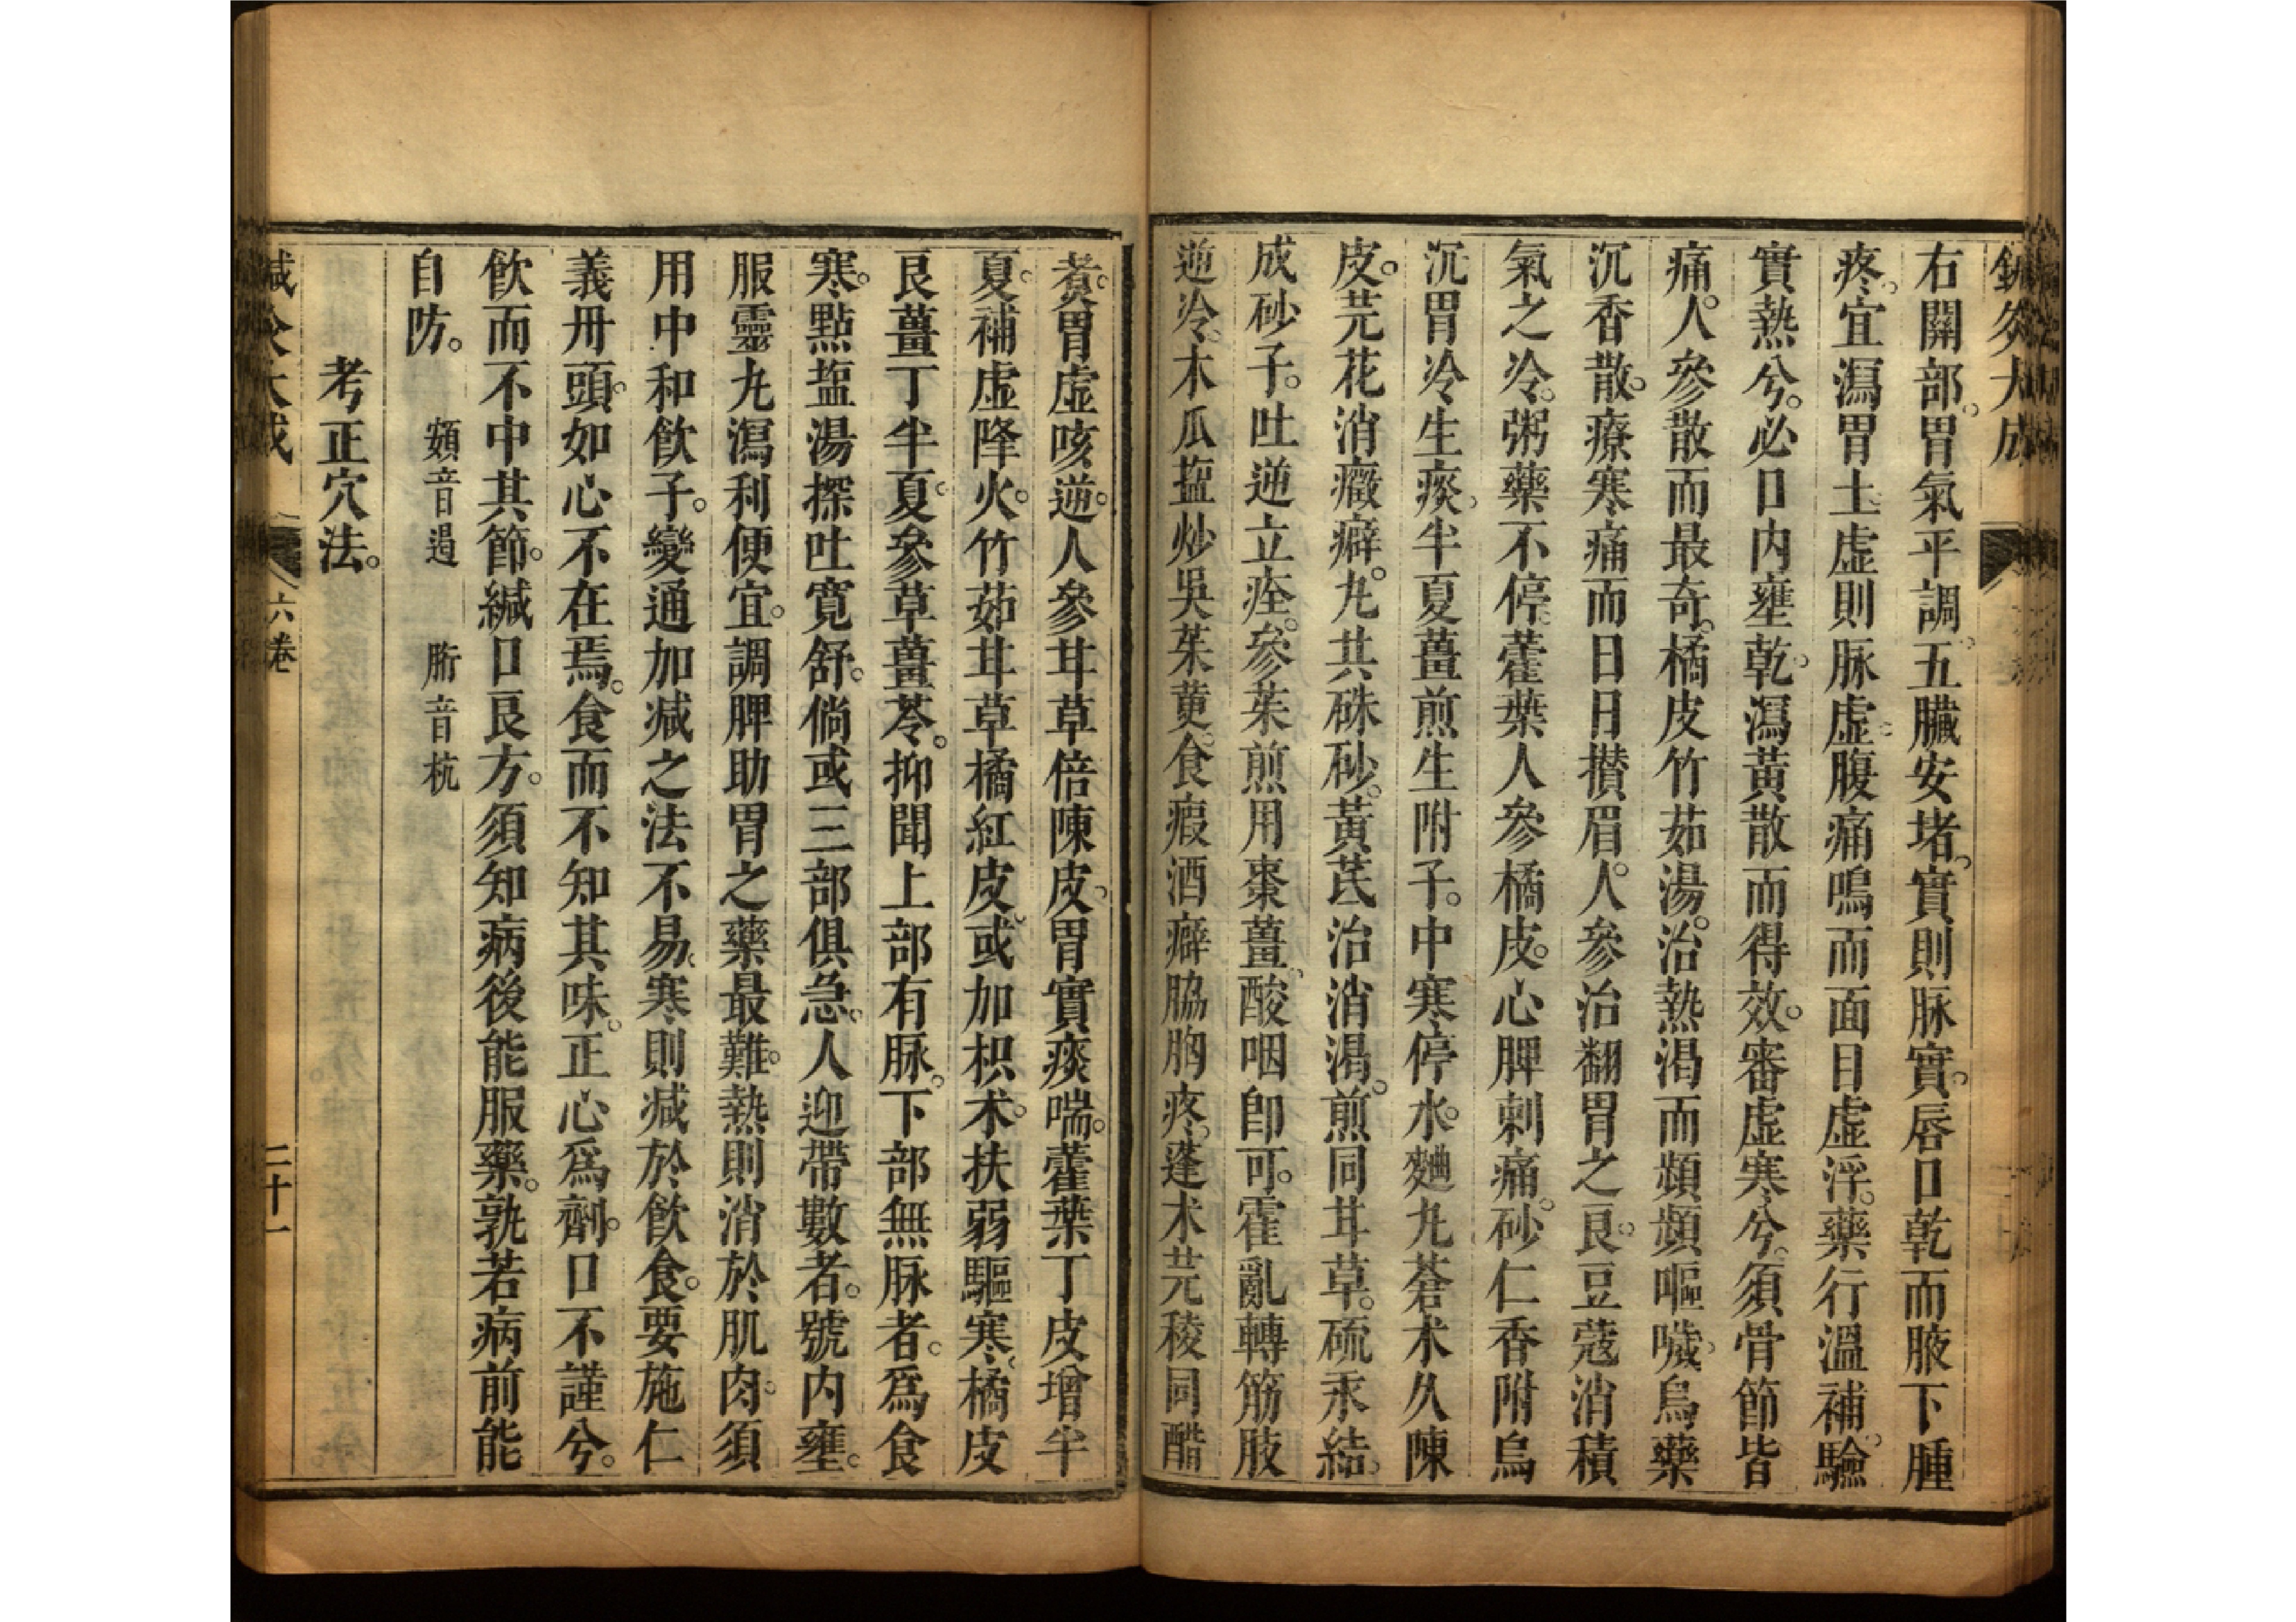 鍼灸大成
右關部。胃氣平調。五臟安堵。實則脉實。唇口乾而腋下腫
疼。宜瀉胃土。虛則脉虛。腹痛鳴而面目虛浮。藥行溫補。驗
實熱兮。必口内壅乾。瀉黃散而得效。審虛寒兮。須骨節皆
痛。人參散而最奇。橘皮竹茹湯。治熱渴而頻頻嘔噦。烏藥
沉香散。療寒痛而日日攅眉。人參治翻胃之良。豆蔻消積
氣之冷。粥藥不停。藿葉人參橘皮。心脾刺痛。砂仁香附烏
沉。胃冷生痰。半夏薑煎生附子。中寒停水。麯丸蒼术久陳
皮。芫花消癥癖。丸共硃砂。黃芪治消渴。煎同甘草。硫汞結
成砂子。吐逆立痊。參茱煎用棗薑。酸咽即可。霍亂轉筋肢
逆冷。木瓜塩炒吳茱萸。食瘕酒癖脇胸疼。蓬术芫稜同醋
煑。胃虛咳逆。人參甘草倍陳皮。胃實痰喘。藿葉丁皮增半
夏。補虛降火。竹茹甘草橘紅皮。或加枳术。扶弱驅寒。橘皮
良薑丁半夏。參草薑苓。抑聞上部有脉。下部無脉者。爲食
寒。點塩湯探吐寛舒。倘或三部俱急。人迎帶數者。號内壅。
服靈丸瀉利便宜。調脾助胃之藥最難。熱則消於肌肉。須
用中和飲子。變通加減之法不易。寒則減於飲食。要施仁
義丹頭。如心不在焉。食而不知其味。正心爲劑。口不謹兮。
飲而不中其節。緘口良方。須知病後能服藥。孰若病前能
自防。　頞音遏　胻音杭
考正穴法。
鍼灸大成　六卷　二十一